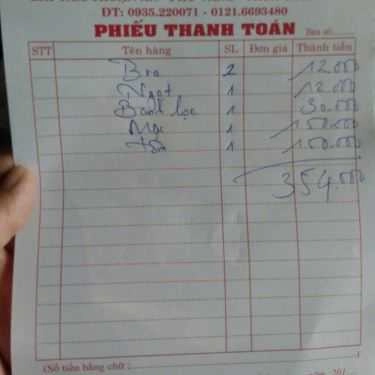 ĐT: 0935.220071 - 0121.6693480
PHIẾU THANH TOÁN Bàn số
STT Tên hàng SL Đơn giá Thành tiền
Bia 2 12.000
Ngọt 1 12.000
Bánh lọc 1 30.000
Mực 1 150.000
Tôm 1 150.000
354.000
(Số tiền bằng chữ :